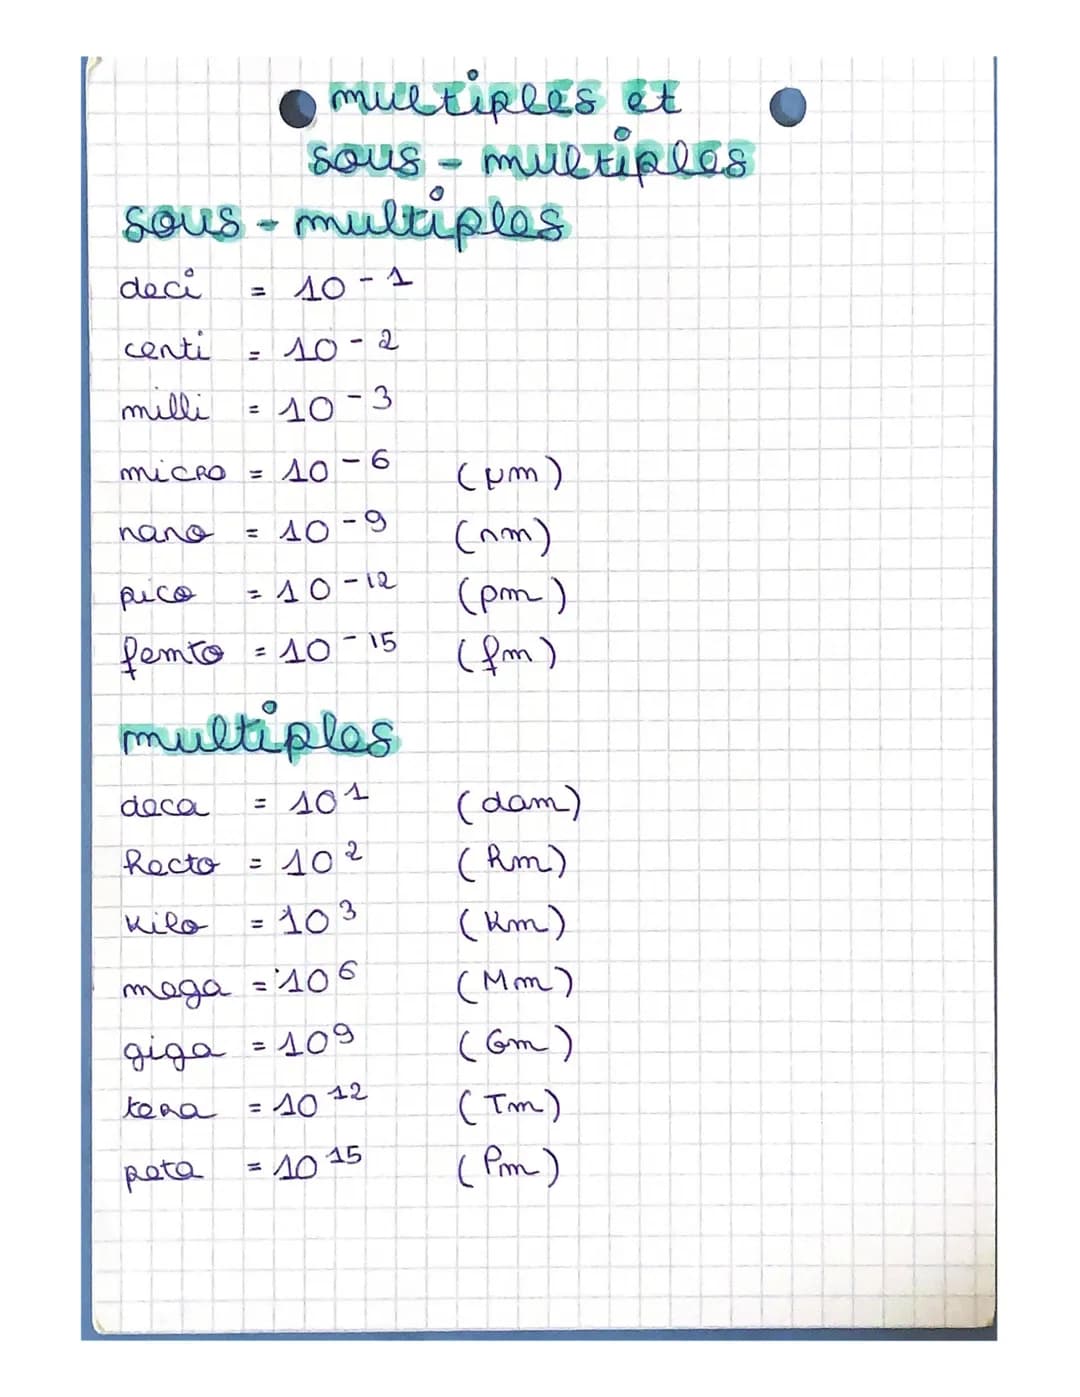 multiples et
sous-multiples
sous-multiples
deci = 10⁻¹
centi = 10⁻²
milli = 10⁻³
micro = 10⁻⁶ (μm)
nano = 10⁻⁹ (nm)
pico = 10⁻¹² (pm)
femto = 10⁻¹⁵ (fm)
multiples
deca = 10¹ (dam)
hecto = 10² (hm)
kilo = 10³ (km)
mega = 10⁶ (Mm)
giga = 10⁹ (Gm)
tera = 10¹² (Tm)
peta = 10¹⁵ (Pm)